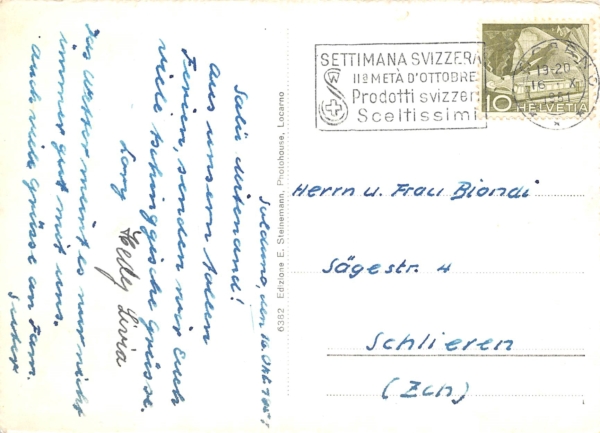 Solduno, den 16. Okt. 195
Salü mitenand!
Aus unsern tollen
Ferien, senden wir Euch
viele tschinggische Grüsse.
Lony Hedy Livia
Das Wetter meint es nur nicht
immer gut mit uns.
Auch viele Grüsse an Fam.
Suter
6382 Edizione E. Steinemann, Photohouse, Locarno
SETTIMANA SVIZZERA
IIª METÀ D'OTTOBRE
Prodotti svizzeri
Sceltissimi
-13.20
16. X.
10 HELVETIA
Herrn u. Frau Biondi
Sägestr. 4
Schlieren
(Zch)